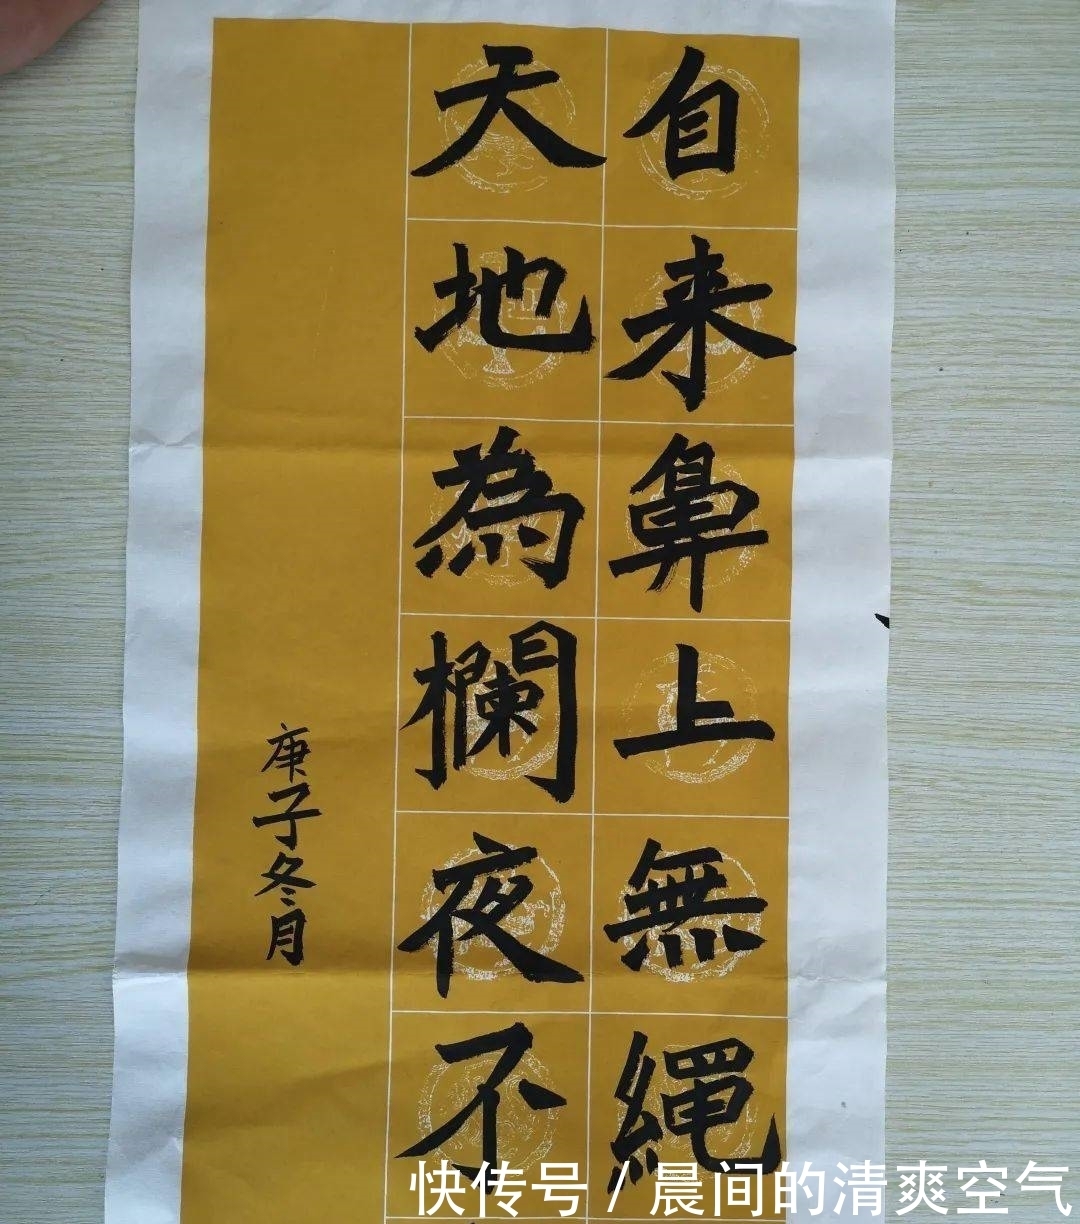 自来鼻上無繩
天地為欄夜不
庚子冬月
快传号 / 晨间的清爽空气